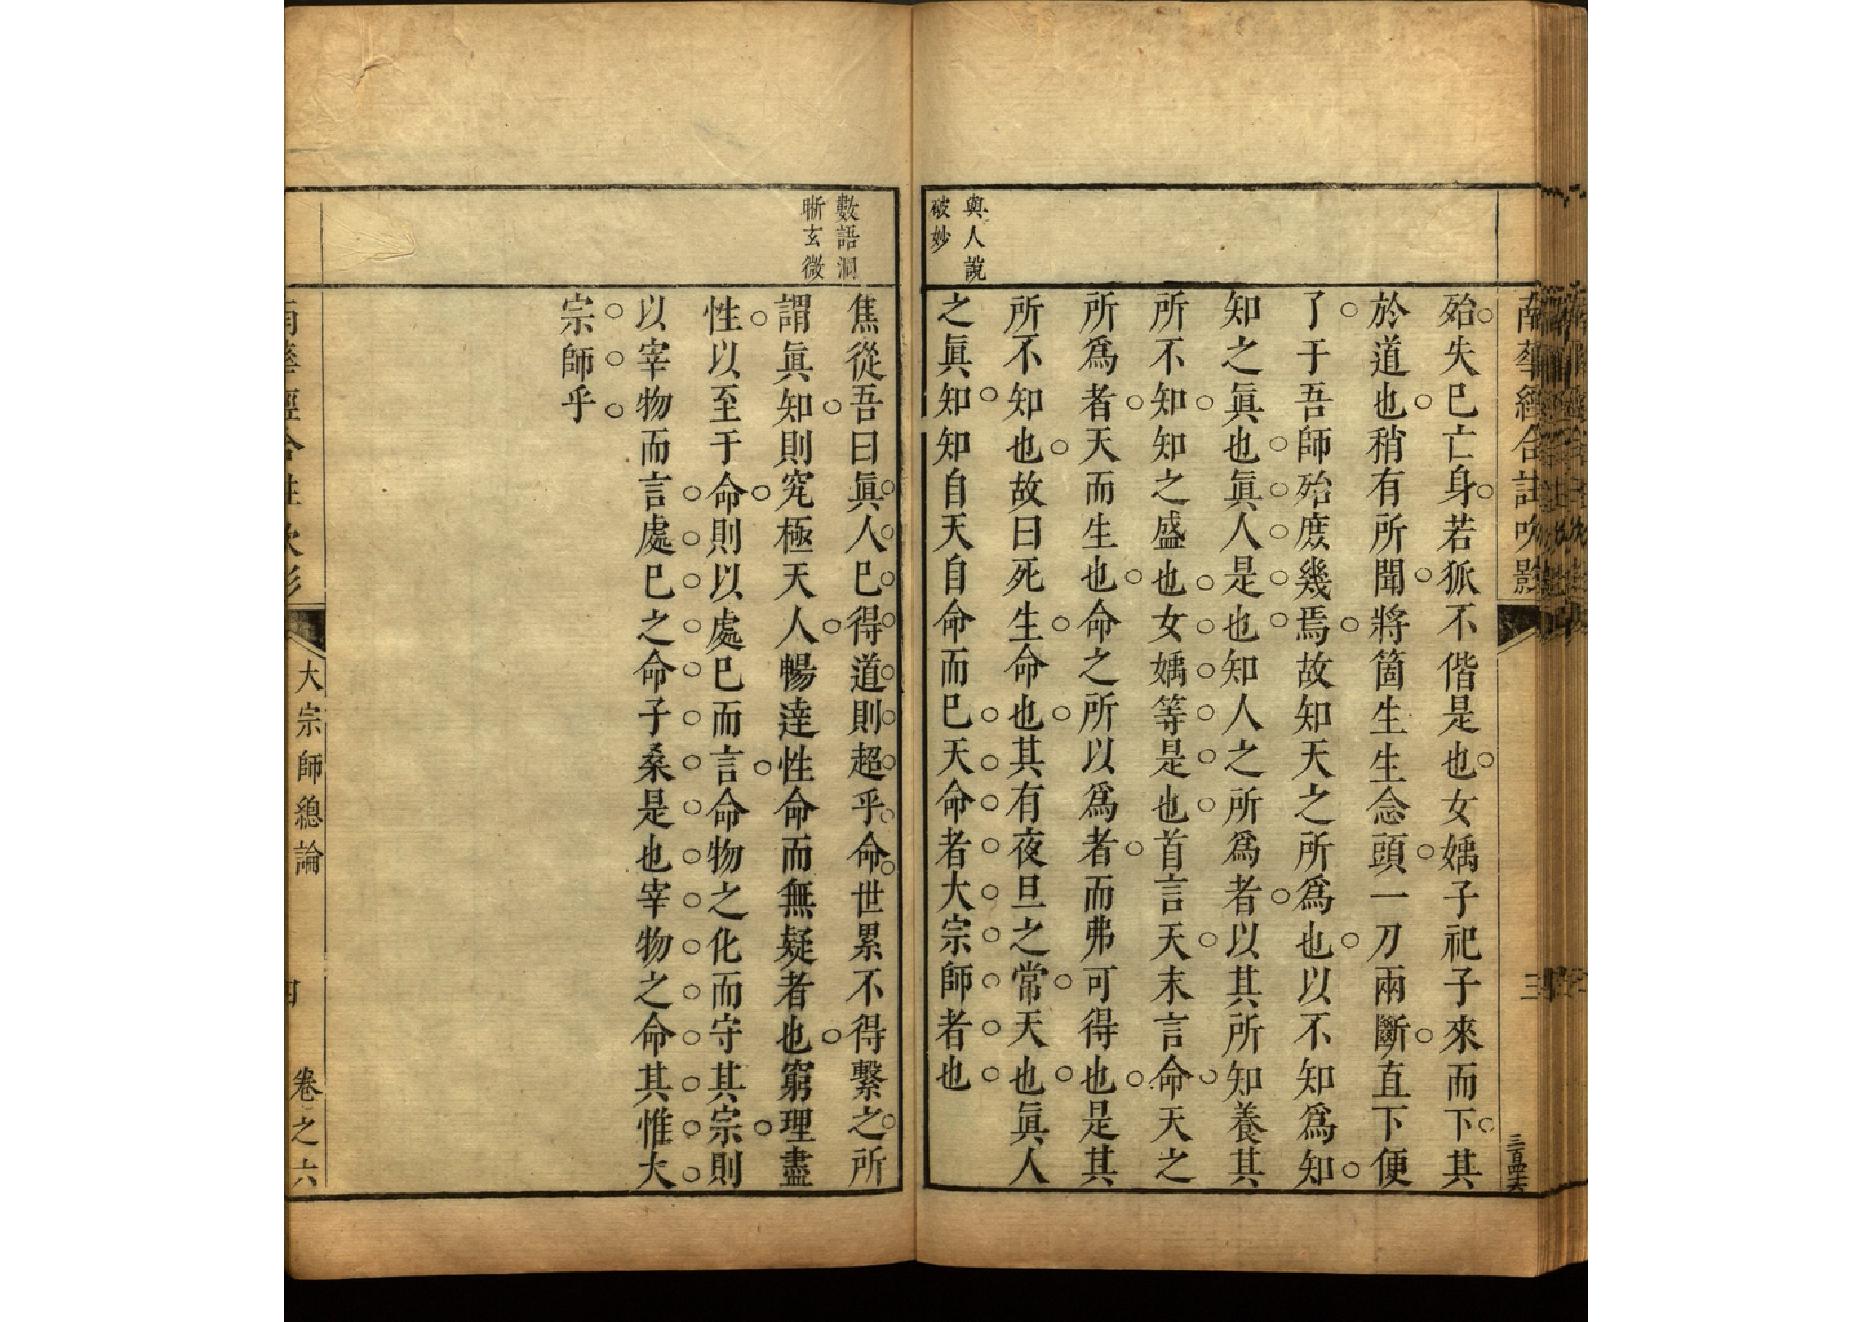 南華經合註吹影
三
三百四十六
與人說
破妙
殆失已亡身若狐不偕是也女媀子祀子來而下其
於道也稍有所聞將箇生生念頭一刀兩斷直下便
了于吾師殆庻幾焉故知天之所爲也以不知爲知
知之眞也眞人是也知人之所爲者以其所知養其
所不知知之盛也女媀等是也首言天末言命天之
所爲者天而生也命之所以爲者而弗可得也是其
所不知也故曰死生命也其有夜旦之常天也眞人
之眞知知自天自命而已天命者大宗師者也
數語洞
晰玄微
焦從吾曰眞人已得道則超乎命世累不得繫之所
謂眞知則究極天人暢逹性命而無疑者也窮理盡
性以至于命則以處已而言命物之化而守其宗則
以宰物而言處已之命子桑是也宰物之命其惟大
宗師乎
南華經合註吹影
大宗師總論
四
卷之六